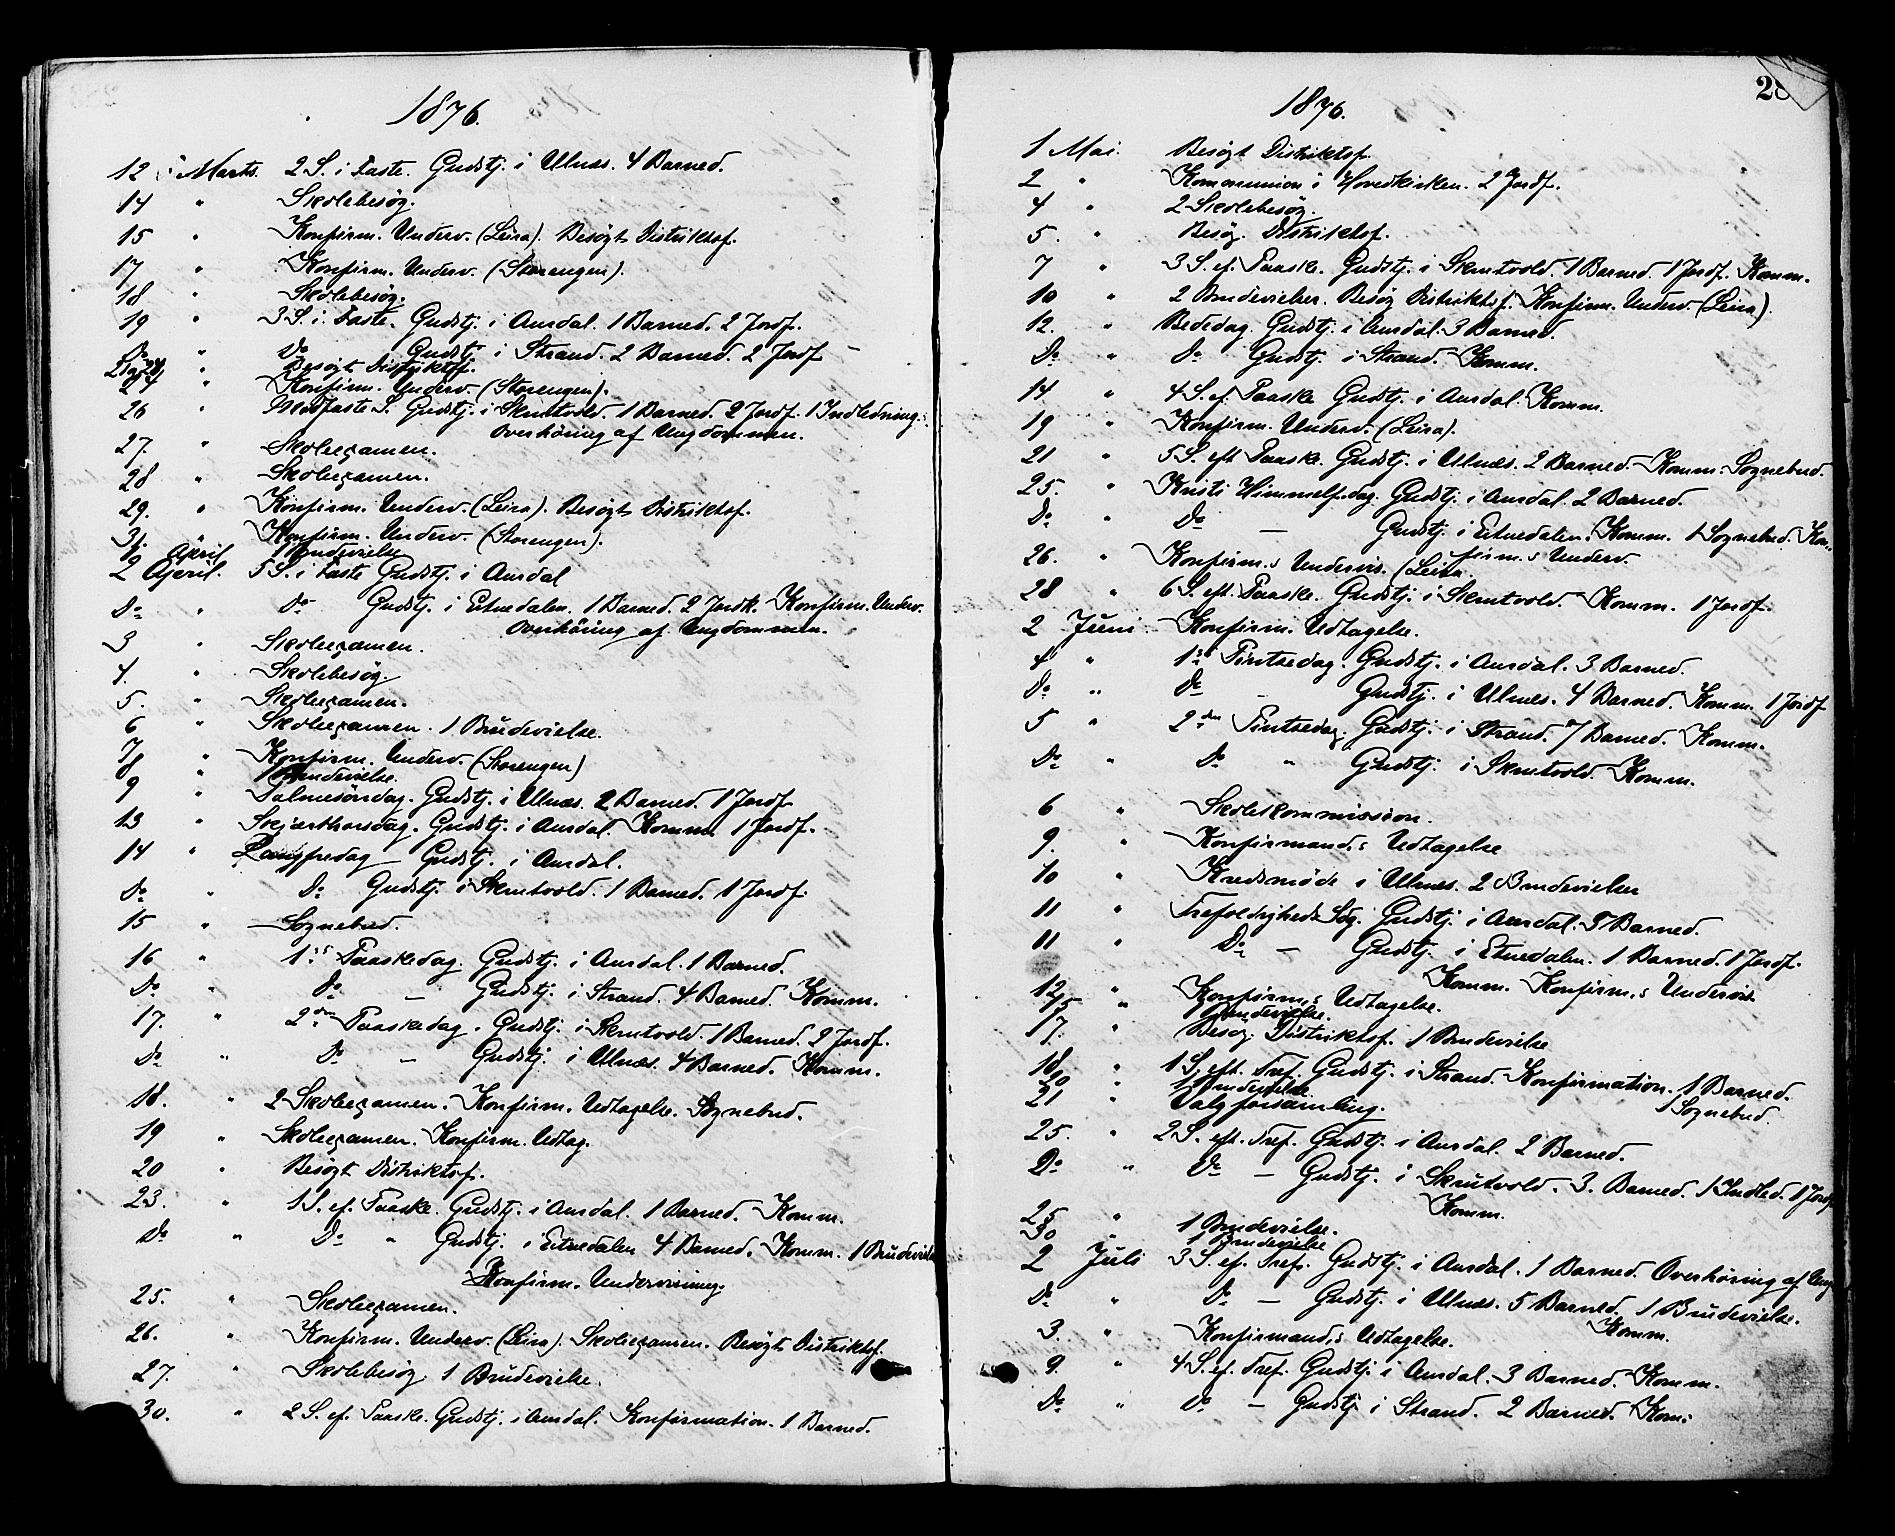 1876.
12 Marts. 2 S. i Faste. Gudstj. i Ulnæs. 4 Barned.
14 " Skolebesøg.
15 " Konfirm. Underv. (Leira). Besøgt Distriktsf.
17 " Konfirm. Underv. (Storengen).
18 " Skolebesøg.
19 " 3 S. i Faste. Gudstj. i Aurdal. 1 Barned. 2 Jordf.
Do " Do Gudstj. i Strand. 2 Barned. 2 Jordf
" Besøgt Distriktsf.
" Konfirm. Underv. (Storengen).
26 " Midfaste S. Gudstj. i Skrutvold. 1 Barned. 2 Jordf. 1 Indledning.
Overhöring af Ungdommen.
27. " Skoleexamen.
28 " Skoleexamen.
29. " Konfirm. Underv. (Leira). Besøgt Distriktsf.
31. " Konfirm. Underv. (Storengen).
April 1 Brudevielse
2 April. 5 S. i Faste Gudstj. i Aurdal
Do " Do Gudstj. i Etnedalen. 1 Barned. 2 Jordf. Konfirm. Underv.
Overhöring af Ungdommen.
3 " Skoleexamen.
4. " Skolebesøg.
5. " Skoleexamen.
6 " Skoleexamen. 1 Brudevielse.
7 " Konfirm. Underv. (Storengen)
8 " 1 Brudevielse.
9 " Palmesöndag. Gudstj. i Ulnæs. 2 Barned. 1 Jordf
13 " Skjærthorsdag. Gudstj. i Aurdal. Komm. 1 Jordf.
14 " Langfredag Gudstj. i Aurdal.
Do " Do Gudstj. i Skrutvold. 1 Barned. 1 Jordf.
15 " Sognebud.
16 " 1ste Paaskedag. Gudstj. i Aurdal. 1 Barned.
Do " Do — Gudstj. i Strand. 4 Barned. Komm.
17. " 2den Paaskedag. Gudstj. i Skrutvold. 1 Barned. 2 Jordf.
Do " Do — Gudstj. i Ulnæs. 4 Barned. Komm.
18. " 2 Skoleexamen. Konfirm. Udtagelse. Sognebud.
19 " Skoleexamen. Konfirm. Udtag.
20 " Besøgt Distriktsf.
23. " 1 S. ef. Paaske. Gudstj. i Aurdal. 1 Barned. Komm.
Do " Do " Gudstj. i Etnedalen 4 Barned. Komm. 1 Brudevielse
Konfirm. Undervisning.
25. " Skoleexamen.
26. " Konfirm. Underv. (Leira). Skoleexamen. Besøgt Distriktsf.
27. " Skolebesög. 1 Brudevielse.
30. " 2 S. ef. Paaske. Gudstj. i Aurdal. Konfirmation. 1 Barned.
28
1876.
1 Mai. Besögt Distriktsf.
2 " Kommunion i Hovedkirken. 2 Jordf.
4 " 2 Skolebesøg.
5. " Besög. Distriktsf.
7 " 3 S. ef. Paaske. Gudstj. i Skrutvold. 1 Barned. 1 Jordf. Komm.
10 " 2 Brudevielser. Besög Distriktsf. Konfirm. Underv. (Leira).
12. " Bededag. Gudstj. i Aurdal. 3 Barned.
Do " Do Gudstj. i Strand. Komm.
14 " 4 S. ef. Paaske Gudstj. i Aurdal. Komm.
19 " Konfirm. Underv. (Leira).
21 " 5 S. eft. Paaske. Gudstj. i Ulnæs. 2 Barned. Komm. Sognebud.
25. " Kristi Himmelf.dag. Gudstj. i Aurdal. 2 Barned.
Do " Do — Gudstj. i Etnedalen. Komm. 1 Sognebud. Kon-
firm.s Underv.
26. " Konfirm.s Undervis. (Leira
28 " 6 S. eft. Paaske. Gudstj. i Skrutvold. Komm. 1 Jordf.
2 Juni. Konfirm. Udtagelse.
4 " 1ste Pintsedag. Gudstj. i Aurdal. 3 Barned.
Do " Do Gudstj. i Ulnæs. 4 Barned. Komm. 1 Jordf
5 " 2den Pintsedag. Gudstj. i Strand. 7 Barned. Komm.
Do " Do " Gudstj. i Skrutvold. Komm.
6 " Skolekommission.
9. " Konfirmand.s Udtagelse
10 " Kredsmöde i Ulnæs. 2 Brudevielser
11 " Trefoldigheds Sög. Gudstj. i Aurdal. 5 Barned.
11 " Do — Gudstj. i Etnedalen. 1 Barned. 1 Jordf.
Komm. Konfirm.s Underv.
12 " Konfirm.s Udtagelse.
15 " 1 Brudevielse.
17. " Besøg. Distriktsf. 1 Brudevielse
18 " 1 S. eft. Tref. Gudstj. i Strand. Konfirmation. 1 Barned.
Sognebud.
20 " 1 Brudevielse
21 " Valgforsamling.
25. " 2 S. eft. Tref. Gudstj. i Aurdal. 2 Barned.
Do " Do — Gudstj. i Skrutvold. 3. Barned. 1 Indled. 1 Jordf
Komm.
" 1 Brudevielse.
30 " Brudevielse
2 Juli 3 S. ef. Tref. Gudstj. i Aurdal. 1 Barned. Overhöring af Ung
Do " Do — Gudstj. i Ulnæs. 5 Barned. 1 Brudevielse.
Komm.
3. " Konfirmand.s Udtagelse.
9. " 4 S. ef. Tref. Gudstj. i Aurdal. 3 Barned. Komm.
Do " Do — Gudstj. i Strand. 2 Barned. Kom.